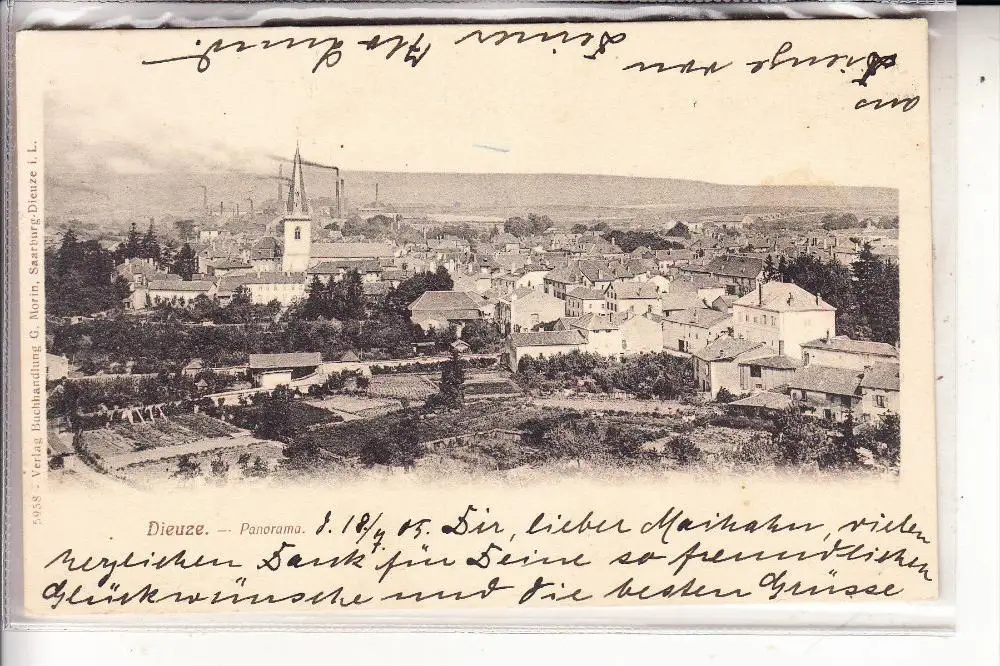 Verlag Buchhandlung G. Morin, Saarburg-Dieuze i. L.
5958
Dieuze. — Panorama.
Dir, lieber Maikahn, vielen
herzlichen Dank für Deine so freundlichen
Glückwünsche und die besten Grüsse
aus
Dieuze von Deinem